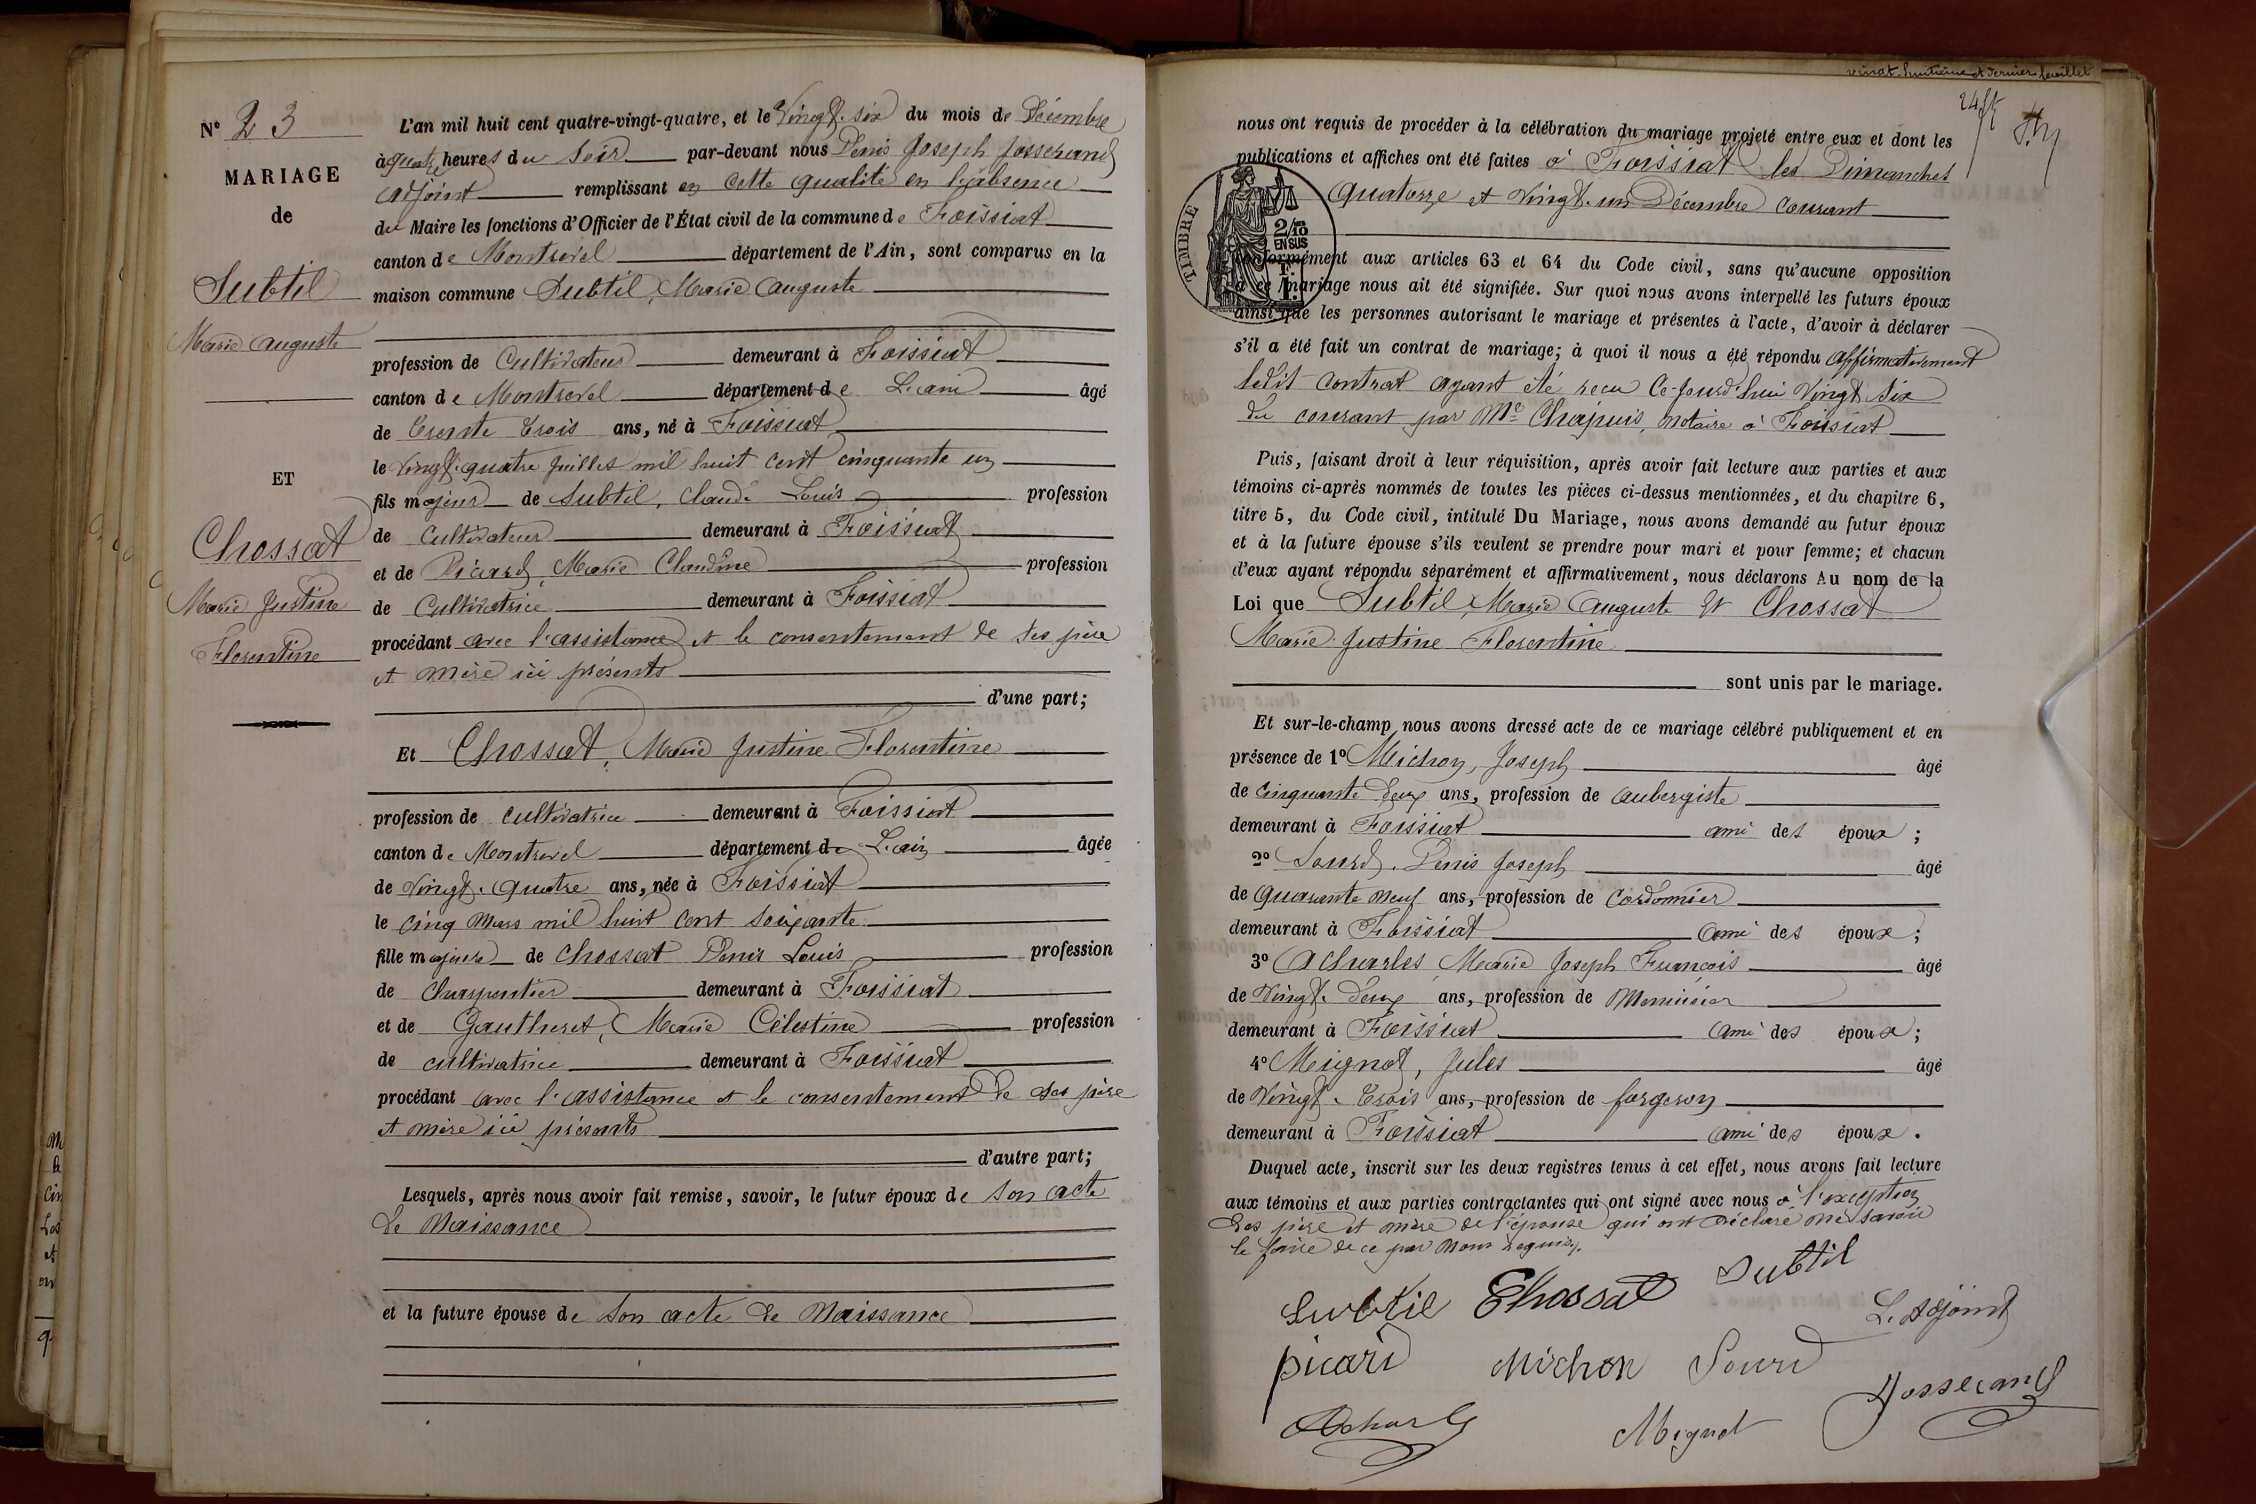 N° 23
MARIAGE
de
Subtil
Marie Auguste
ET
Chossat
Marie Justine
Florentine
L'an mil huit cent quatre-vingt-quatre, et le Vingt-six du mois de Décembre
à quatre heures du soir par-devant nous Denis Joseph Josserand
adjoint remplissant en cette qualité en l'absence
du Maire les fonctions d'Officier de l'État civil de la commune de Foissiat
canton de Montrevel département de l'Ain, sont comparus en la
maison commune Subtil, Marie Auguste
profession de Cultivateur demeurant à Foissiat
canton de Montrevel département de L'ain âgé
de Trente trois ans, né à Foissiat
le Vingt-quatre Juillet mil huit cent cinquante un
fils majeur de Subtil, Claude Louis profession
de Cultivateur demeurant à Foissiat
et de Picard, Marie Claudine profession
de Cultivatrice demeurant à Foissiat
procédant avec l'assistance et le consentement de ses père
et mère ici présents
d'une part;
Et Chossat, Marie Justine Florentine
profession de cultivatrice demeurant à Foissiat
canton de Montrevel département de L'ain âgée
de Vingt-quatre ans, née à Foissiat
le cinq Mars mil huit cent soixante
fille majeure de Chossat Denis Louis profession
de Charpentier demeurant à Foissiat
et de Gautheret, Marie Célestine profession
de cultivatrice demeurant à Foissiat
procédant avec l'assistance et le consentement de ses père
et mère ici présents
d'autre part;
Lesquels, après nous avoir fait remise, savoir, le futur époux de son acte
de Naissance
et la future épouse de son acte de Naissance
vingt-huitième et dernier feuillet
nous ont requis de procéder à la célébration du mariage projeté entre eux et dont les
publications et affiches ont été faites à Foissiat les Dimanches
quatorze et Vingt-un Décembre courant
TIMBRE
2/10
EN SUS
conformément aux articles 63 et 64 du Code civil, sans qu'aucune opposition
à ce mariage nous ait été signifiée. Sur quoi nous avons interpellé les futurs époux
ainsi que les personnes autorisant le mariage et présentes à l'acte, d'avoir à déclarer
s'il a été fait un contrat de mariage; à quoi il nous a été répondu affirmativement
ledit contrat ayant été reçu ce-jourd'hui Vingt six
du courant par Me Chapuis, notaire à Foissiat
Puis, faisant droit à leur réquisition, après avoir fait lecture aux parties et aux
témoins ci-après nommés de toutes les pièces ci-dessus mentionnées, et du chapitre 6,
titre 5, du Code civil, intitulé Du Mariage, nous avons demandé au futur époux
et à la future épouse s'ils veulent se prendre pour mari et pour femme; et chacun
d'eux ayant répondu séparément et affirmativement, nous déclarons Au nom de la
Loi que Subtil, Marie Auguste Et Chossat
Marie Justine Florentine
sont unis par le mariage.
Et sur-le-champ nous avons dressé acte de ce mariage célébré publiquement et en
présence de 1° Michon, Joseph âgé
de cinquante deux ans, profession de aubergiste
demeurant à Foissiat ami des époux;
2° Sourd, Denis Joseph âgé
de quarante neuf ans, profession de Cordonnier
demeurant à Foissiat ami des époux;
3° Acharles Marie Joseph François âgé
de Vingt-deux ans, profession de Menuisier
demeurant à Foissiat ami des époux;
4° Meignot, Jules âgé
de Vingt-trois ans, profession de forgeron
demeurant à Foissiat ami des époux.
Duquel acte, inscrit sur les deux registres tenus à cet effet, nous avons fait lecture
aux témoins et aux parties contractantes qui ont signé avec nous à l'exception
des père et mère de l'épouse qui ont déclaré ne savoir
le faire de ce par nous requis.
Subtil Chossat Subtil
L'adjoint
picard Michon Sourd
Josserand
Acharles Mignot